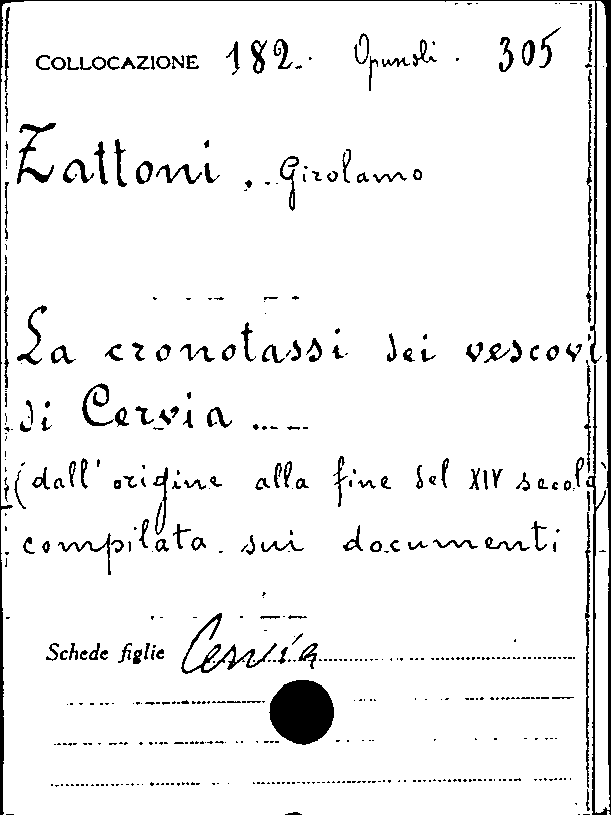 COLLOCAZIONE 182. Opuscoli. 305
Zattoni, Girolamo
La cronotassi dei vescovi
di Cervia
(dall'origine alla fine del XIV secolo)
compilata sui documenti
Schede figlie Cervia